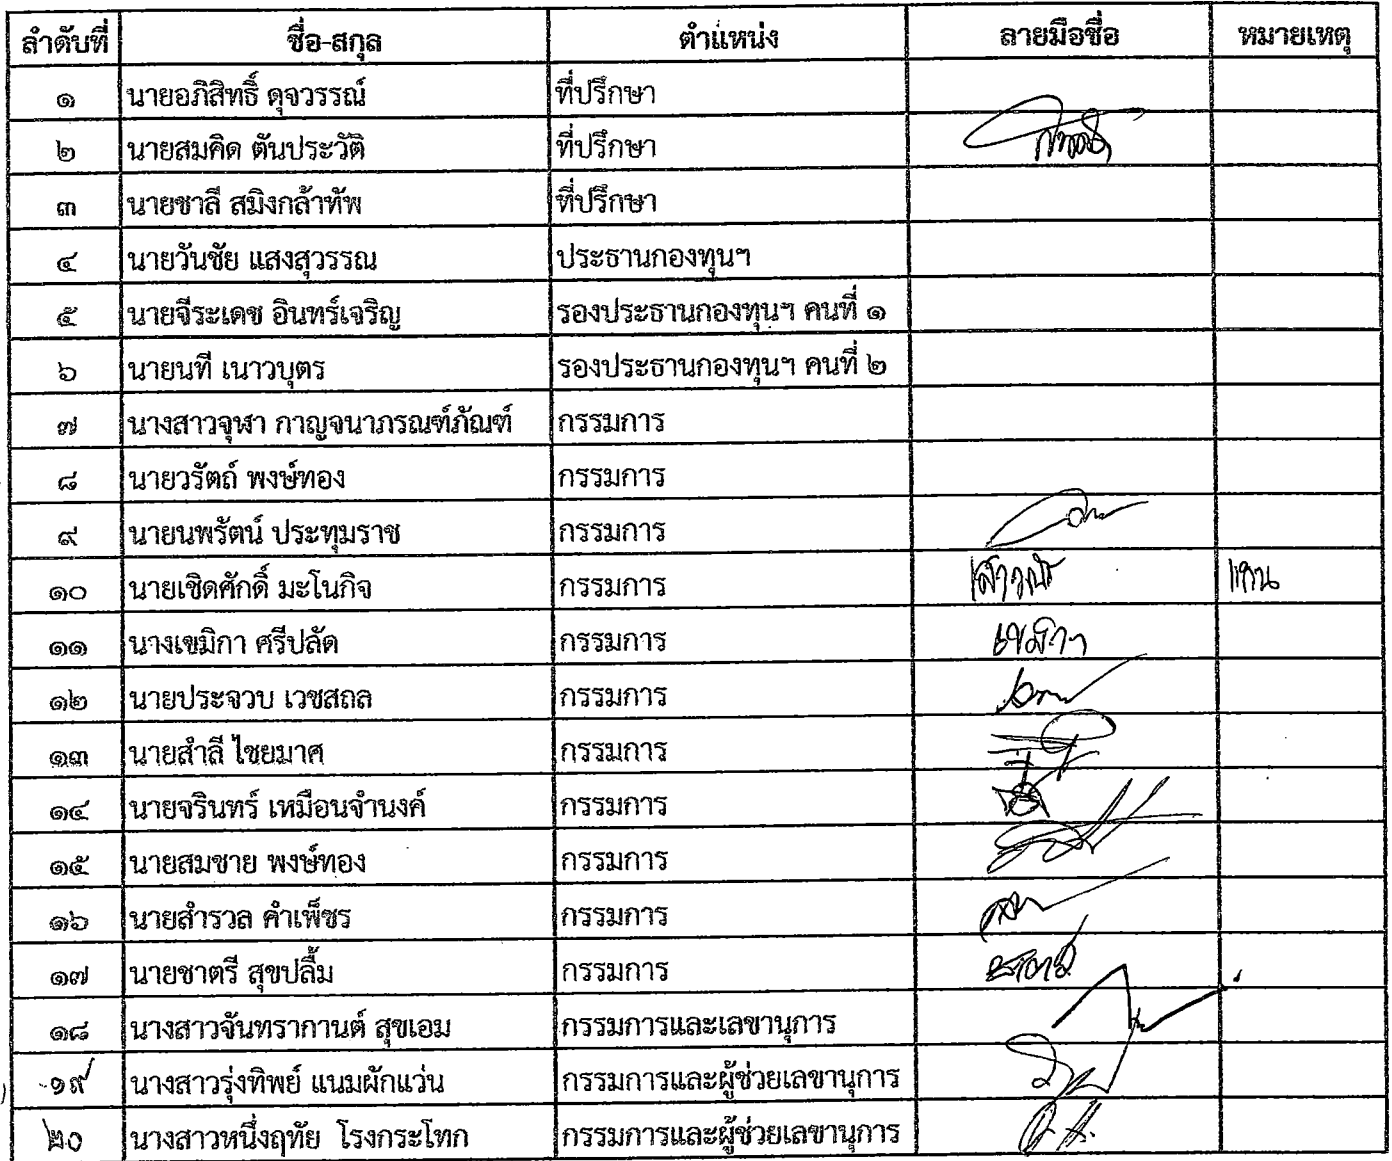 ลำดับที่ ชื่อ-สกุล ตำแหน่ง ลายมือชื่อ หมายเหตุ
๑ นายอภิสิทธิ์ ดุจวรรณ์ ที่ปรึกษา
๒ นายสมคิด ตันประวัติ ที่ปรึกษา
๓ นายชาลี สมิงกล้าทัพ ที่ปรึกษา
๔ นายวันชัย แสงสุวรรณ ประธานกองทุนฯ
๕ นายจีระเดช อินทร์เจริญ รองประธานกองทุนฯ คนที่ ๑
๖ นายนที เนาวบุตร รองประธานกองทุนฯ คนที่ ๒
๗ นางสาวจุฬา กาญจนาภรณฑ์ภัณฑ์ กรรมการ
๘ นายวรัตถ์ พงษ์ทอง กรรมการ
๙ นายนพรัตน์ ประทุมราช กรรมการ
๑๐ นายเชิดศักดิ์ มะโนกิจ กรรมการ แทน
๑๑ นางเขมิกา ศรีปลัด กรรมการ เขมิกา
๑๒ นายประจวบ เวชสถล กรรมการ
๑๓ นายสำลี ไชยมาศ กรรมการ
๑๔ นายจรินทร์ เหมือนจำนงค์ กรรมการ
๑๕ นายสมชาย พงษ์ทอง กรรมการ
๑๖ นายสำรวล คำเพ็ชร กรรมการ
๑๗ นายชาตรี สุขปลื้ม กรรมการ ชาตรี
๑๘ นางสาวจันทรากานต์ สุขเอม กรรมการและเลขานุการ
๑๙ นางสาวรุ่งทิพย์ แนมผักแว่น กรรมการและผู้ช่วยเลขานุการ
๒๐ นางสาวหนึ่งฤทัย โรงกระโทก กรรมการและผู้ช่วยเลขานุการ